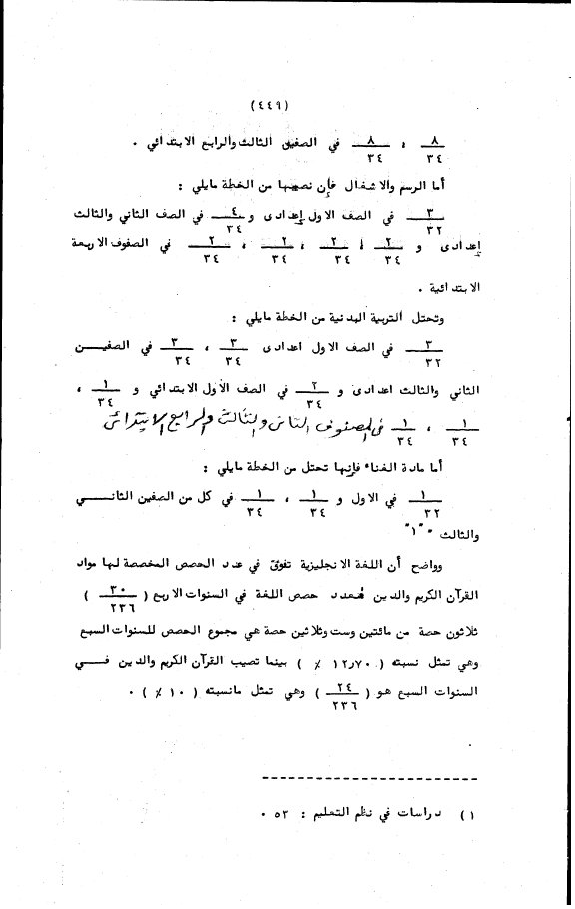 (٤٤٩)
٨/٣٤ ، ٨/٣٤ في الصفين الثالث والرابع الابتدائي .
أما الرسم والاشغال فإن نصيبها من الخطة مايلي :
٣/٣٢ في الصف الاول إعدادى و ٤/٣٤ في الصف الثاني والثالث
إعدادى و ٢/٣٤ ، ٢/٣٤ ، ٢/٣٤ ، ٢/٣٤ في الصفوف الاربعة
الابتدائية .
وتحتل التربية البدنية من الخطة مايلي :
٣/٣٢ في الصف الاول اعدادى ٣/٣٤ ، ٣/٣٤ في الصفيـــن
الثاني والثالث اعدادى و ٢/٣٤ في الصف الأول الابتدائي و ١/٣٤ ،
١/٣٤ ، ١/٣٤ في الصفوف الثاني والثالث والرابع الابتدائي
أما مادة الغناء فإنها تحتل من الخطة مايلي :
١/٣٢ في الاول و ١/٣٤ ، ١/٣٤ في كل من الصفين الثانـــــي
والثالث . "١"
وواضح أن اللغة الانجليزية تفوق في عدد الحصص المخصصة لـها مواد
القرآن الكريم والدين فعدد حصص اللغة في السنوات الاربع ( ٣٠/٢٣٦ )
ثلاثون حصة من مائتين وست وثلاثين حصة هي مجموع الحصص للسنوات السبع
وهي تمثل نسبته ( ١٢٫٧٠ ٪ ) بينما نصيب القرآن الكريم والدين فـــي
السنوات السبع هـو ( ٢٤/٢٣٦ ) وهي تمثل مانسبته ( ١٠ ٪ ) .
١) دراسات في نظم التعليم : ٥٣ .